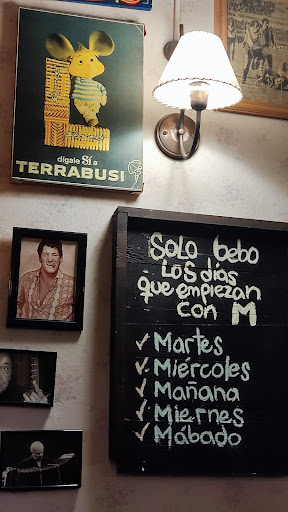 dígale Sí a
TERRABUSI
Solo bebo
Los días
que empiezan
con M
✓ Martes
✓ Miércoles
✓ Mañana
✓ Miernes
✓ Mábado